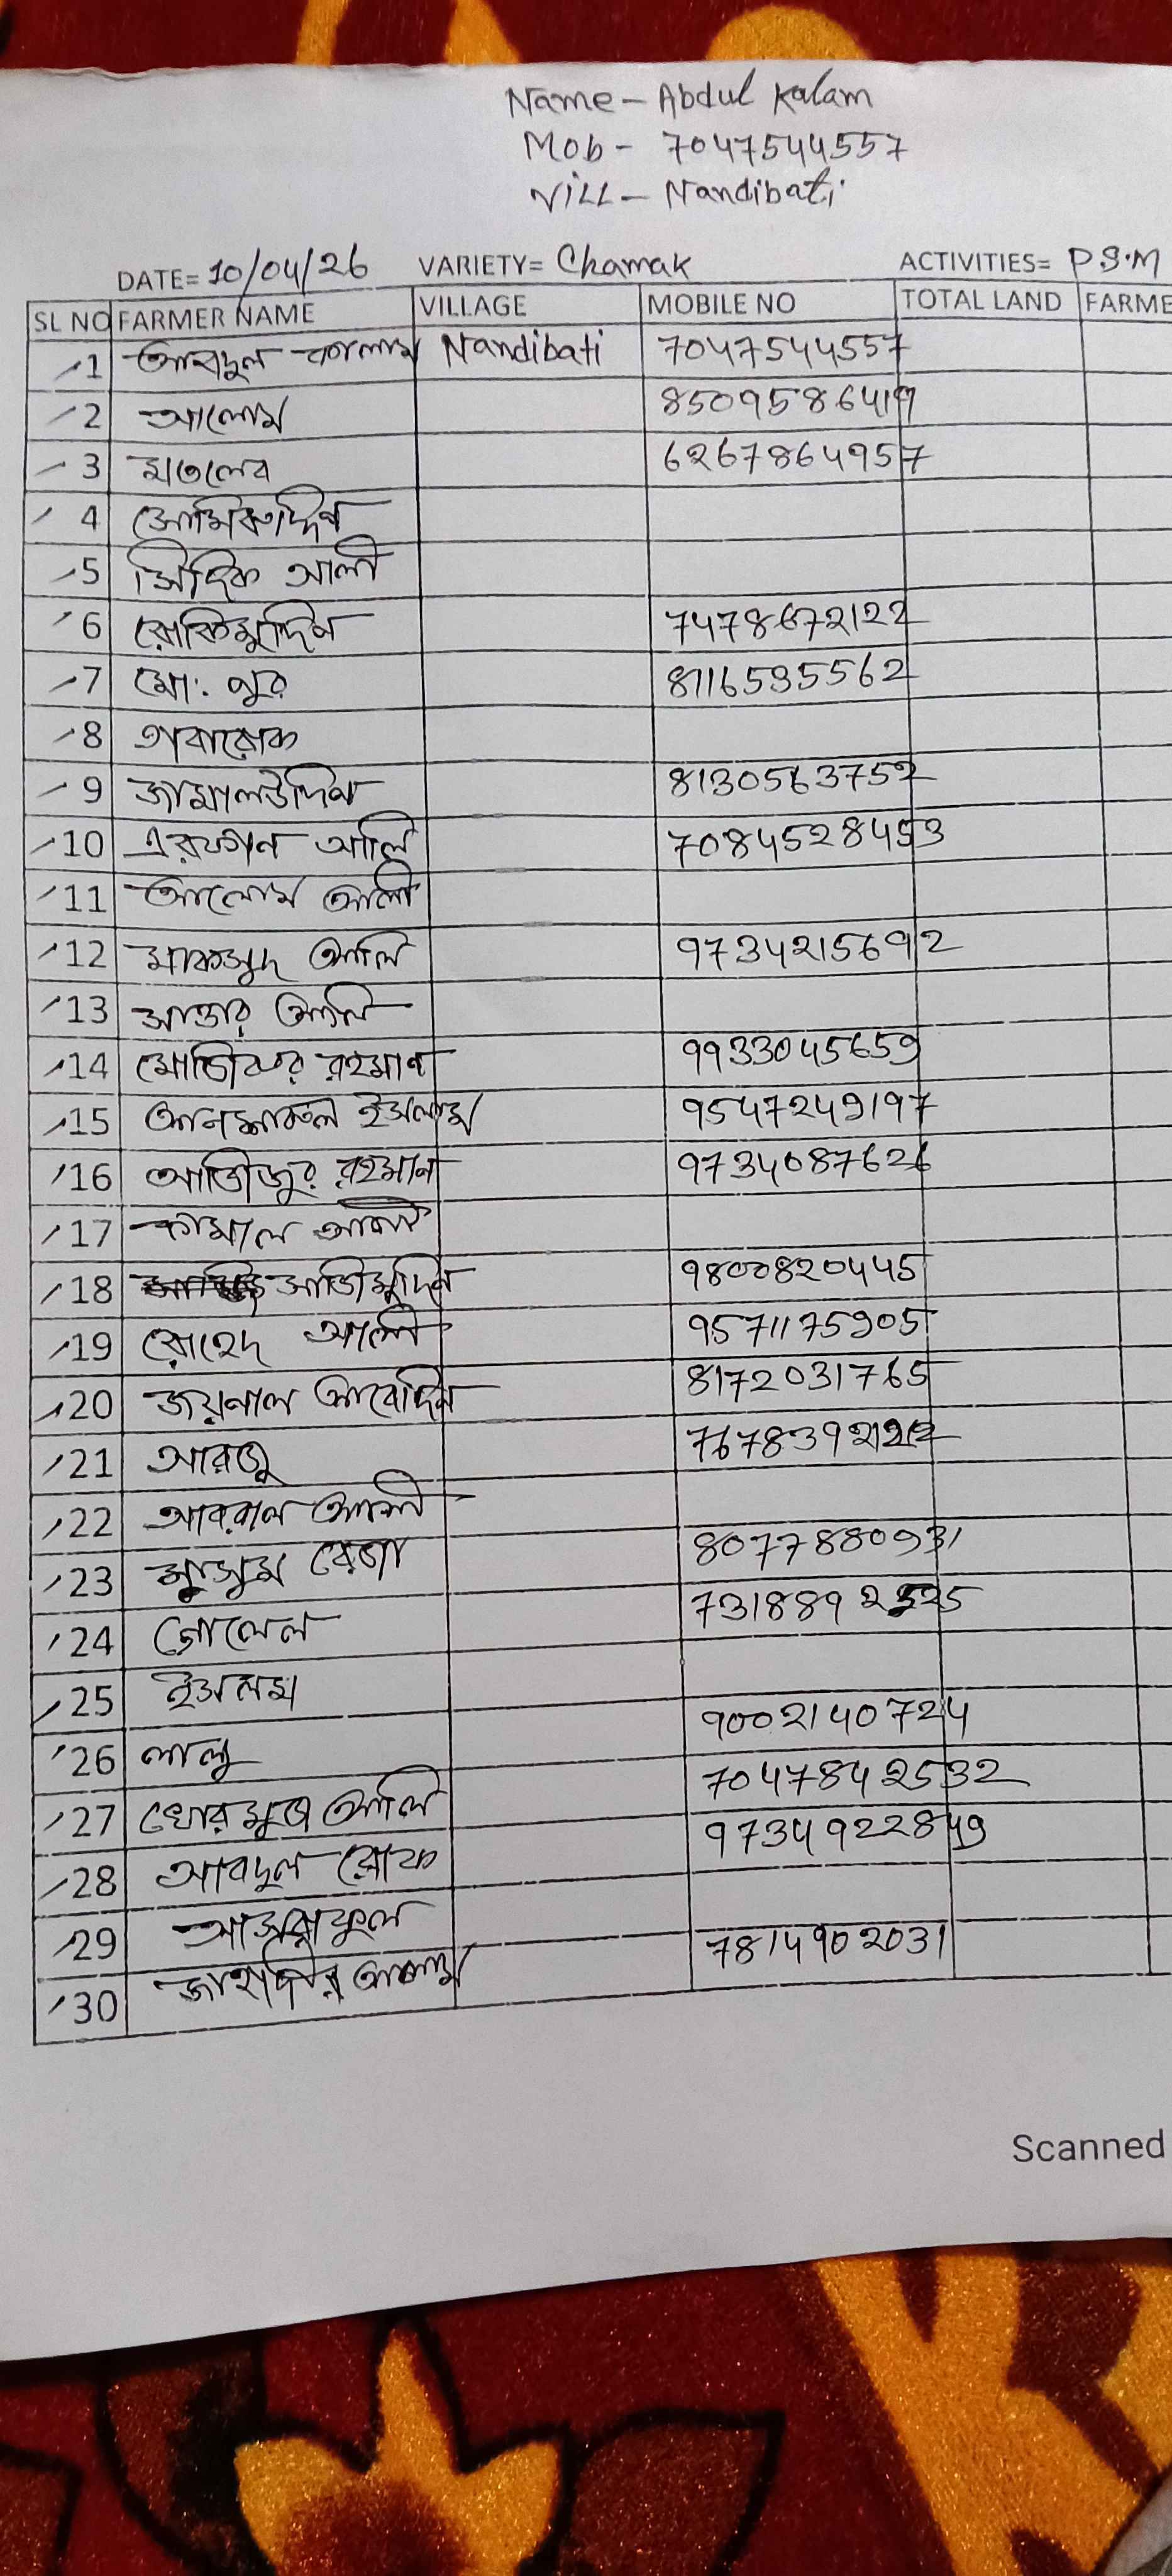 Name - Abdul Kalam
Mob - 7047544557
Vill - Nandibati
DATE= 10/04/26 VARIETY= Chamak ACTIVITIES= P.S.M
SL NO FARMER NAME VILLAGE MOBILE NO TOTAL LAND FARME
1 আবদুল কালাম Nandibati 7047544557
2 আলোম 8509586419
3 মতলেব 6267864957
4
5 সিদ্দিক আলী
6 7478672122
7 মো: নুর 8116535562
8
9 জামালউদ্দিন 8130563752
10 এরফান আলি 7084528453
11 আলোম আলী
12 মাকসুদ আলি 9734215692
13 সাত্তার আলি
14 রহমান 9933045659
15 ইসলাম 9547249197
16 আজিজুর রহমান 9734087626
17 কামাল আলী
18 9800820445
19 আলী 9571175905
20 জয়নাল আবেদিন 8172031765
21 আরজু
22 আলী
23 মুসুম রেজা 8077880931
24
25 ইসলাম
26 লালু 9002140724
27 খোরমুজ আলি 7047842532
28 আবদুল 9734922849
29
30 আলাম 7814902031
Scanned